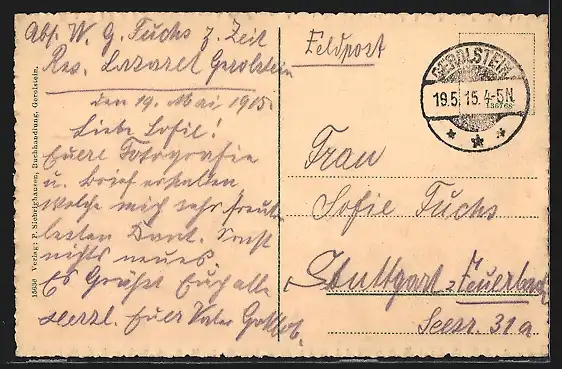 Abs. W. G. Fuchs z. Zeit
Res. Lazaret Gerolstein
den 19. Mai 1915.
Liebe Sofie!
Euere Fotografie
u. Brief erhalten
welche mich sehr freut
besten Dank. Sonst
nichts neues.
Es Grüßt Euch alle
Herzl. Euer Vater Gottlob.
Feldpost
GEROLSTEIN
19.5.15.4-5N.
Frau
Sofie Fuchs
Stuttgart-Feuerbach
Seestr. 31a
15630 Verlag: P. Siebelghausen, Buchhandlung, Gerolstein.